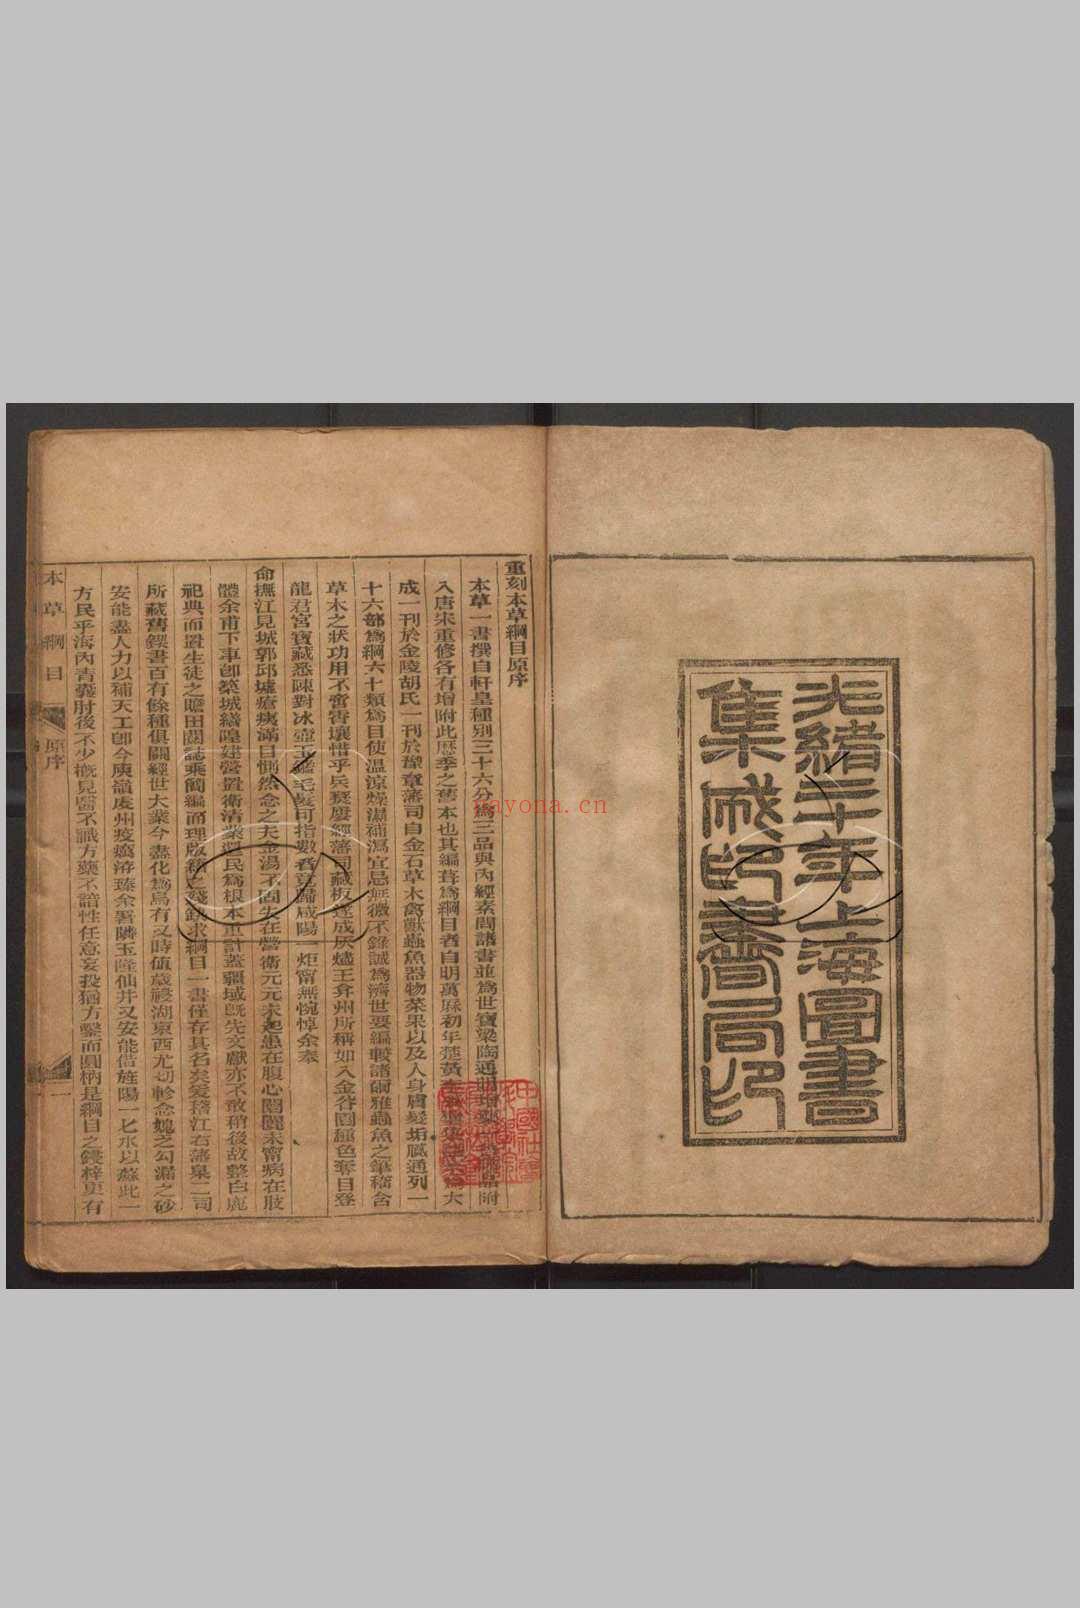 光緒二十年上海圖書
集成印書局印
重刻本草綱目原序
本草一書撰自軒皇種別三十六分爲三品與內經素問諸書並爲世寶梁陶通明增
入唐宋重修各有增附此歷季之舊本也其編葺爲綱目者自明萬曆初年楚黃
成一刊於金陵胡氏一刊於豫章藩司自金石草木禽獸蟲魚器物菜果以及人身膚髮垢膩通列一
十六部爲綱六十類爲目使溫涼燥濕補瀉宜忌無微不錄誠爲濟世要編較諸爾雅蟲魚之箋稽含
草木之狀功用不啻霄壤惜乎兵燹屢經藩司藏板遂成灰燼王弇州所稱如入金谷園種色奪目登
龍君宮寶藏悉陳對冰壺玉鑑毛髮可指數者竟歸咸陽一炬甯無惋悼余奉
命撫江見城郭邱墟瘡痍滿目惻然念之夫金湯不固失在營衛元元未起患在腹心閭閻未甯病在肢
體余甫下車卽築城繕隍建營置衛清業墾民爲根本重計蓋疆域既先文獻亦不敢稍後故整白鹿
祀典而置生徒之贍田閱誌乘簡編而理版籍之殘缺求綱目一書僅存其名矣爰稽江右藩臬二司
所藏舊鍥書百有餘種俱關經世大業今盡化爲烏有又時値歲祲湖東西尤切軫念媿乏勾漏之砂
安能盡人力以補天工卽今庾嶺虔州疫癘洊臻余署隣玉隆仙井又安能借旌陽一匕水以蘇此一
方民乎海內青囊肘後不少槪見醫不識方藥不諳性任意妄投猶方鑿而圓柄是綱目之鋟梓更有
本草綱目
原序
一
nayona.cn